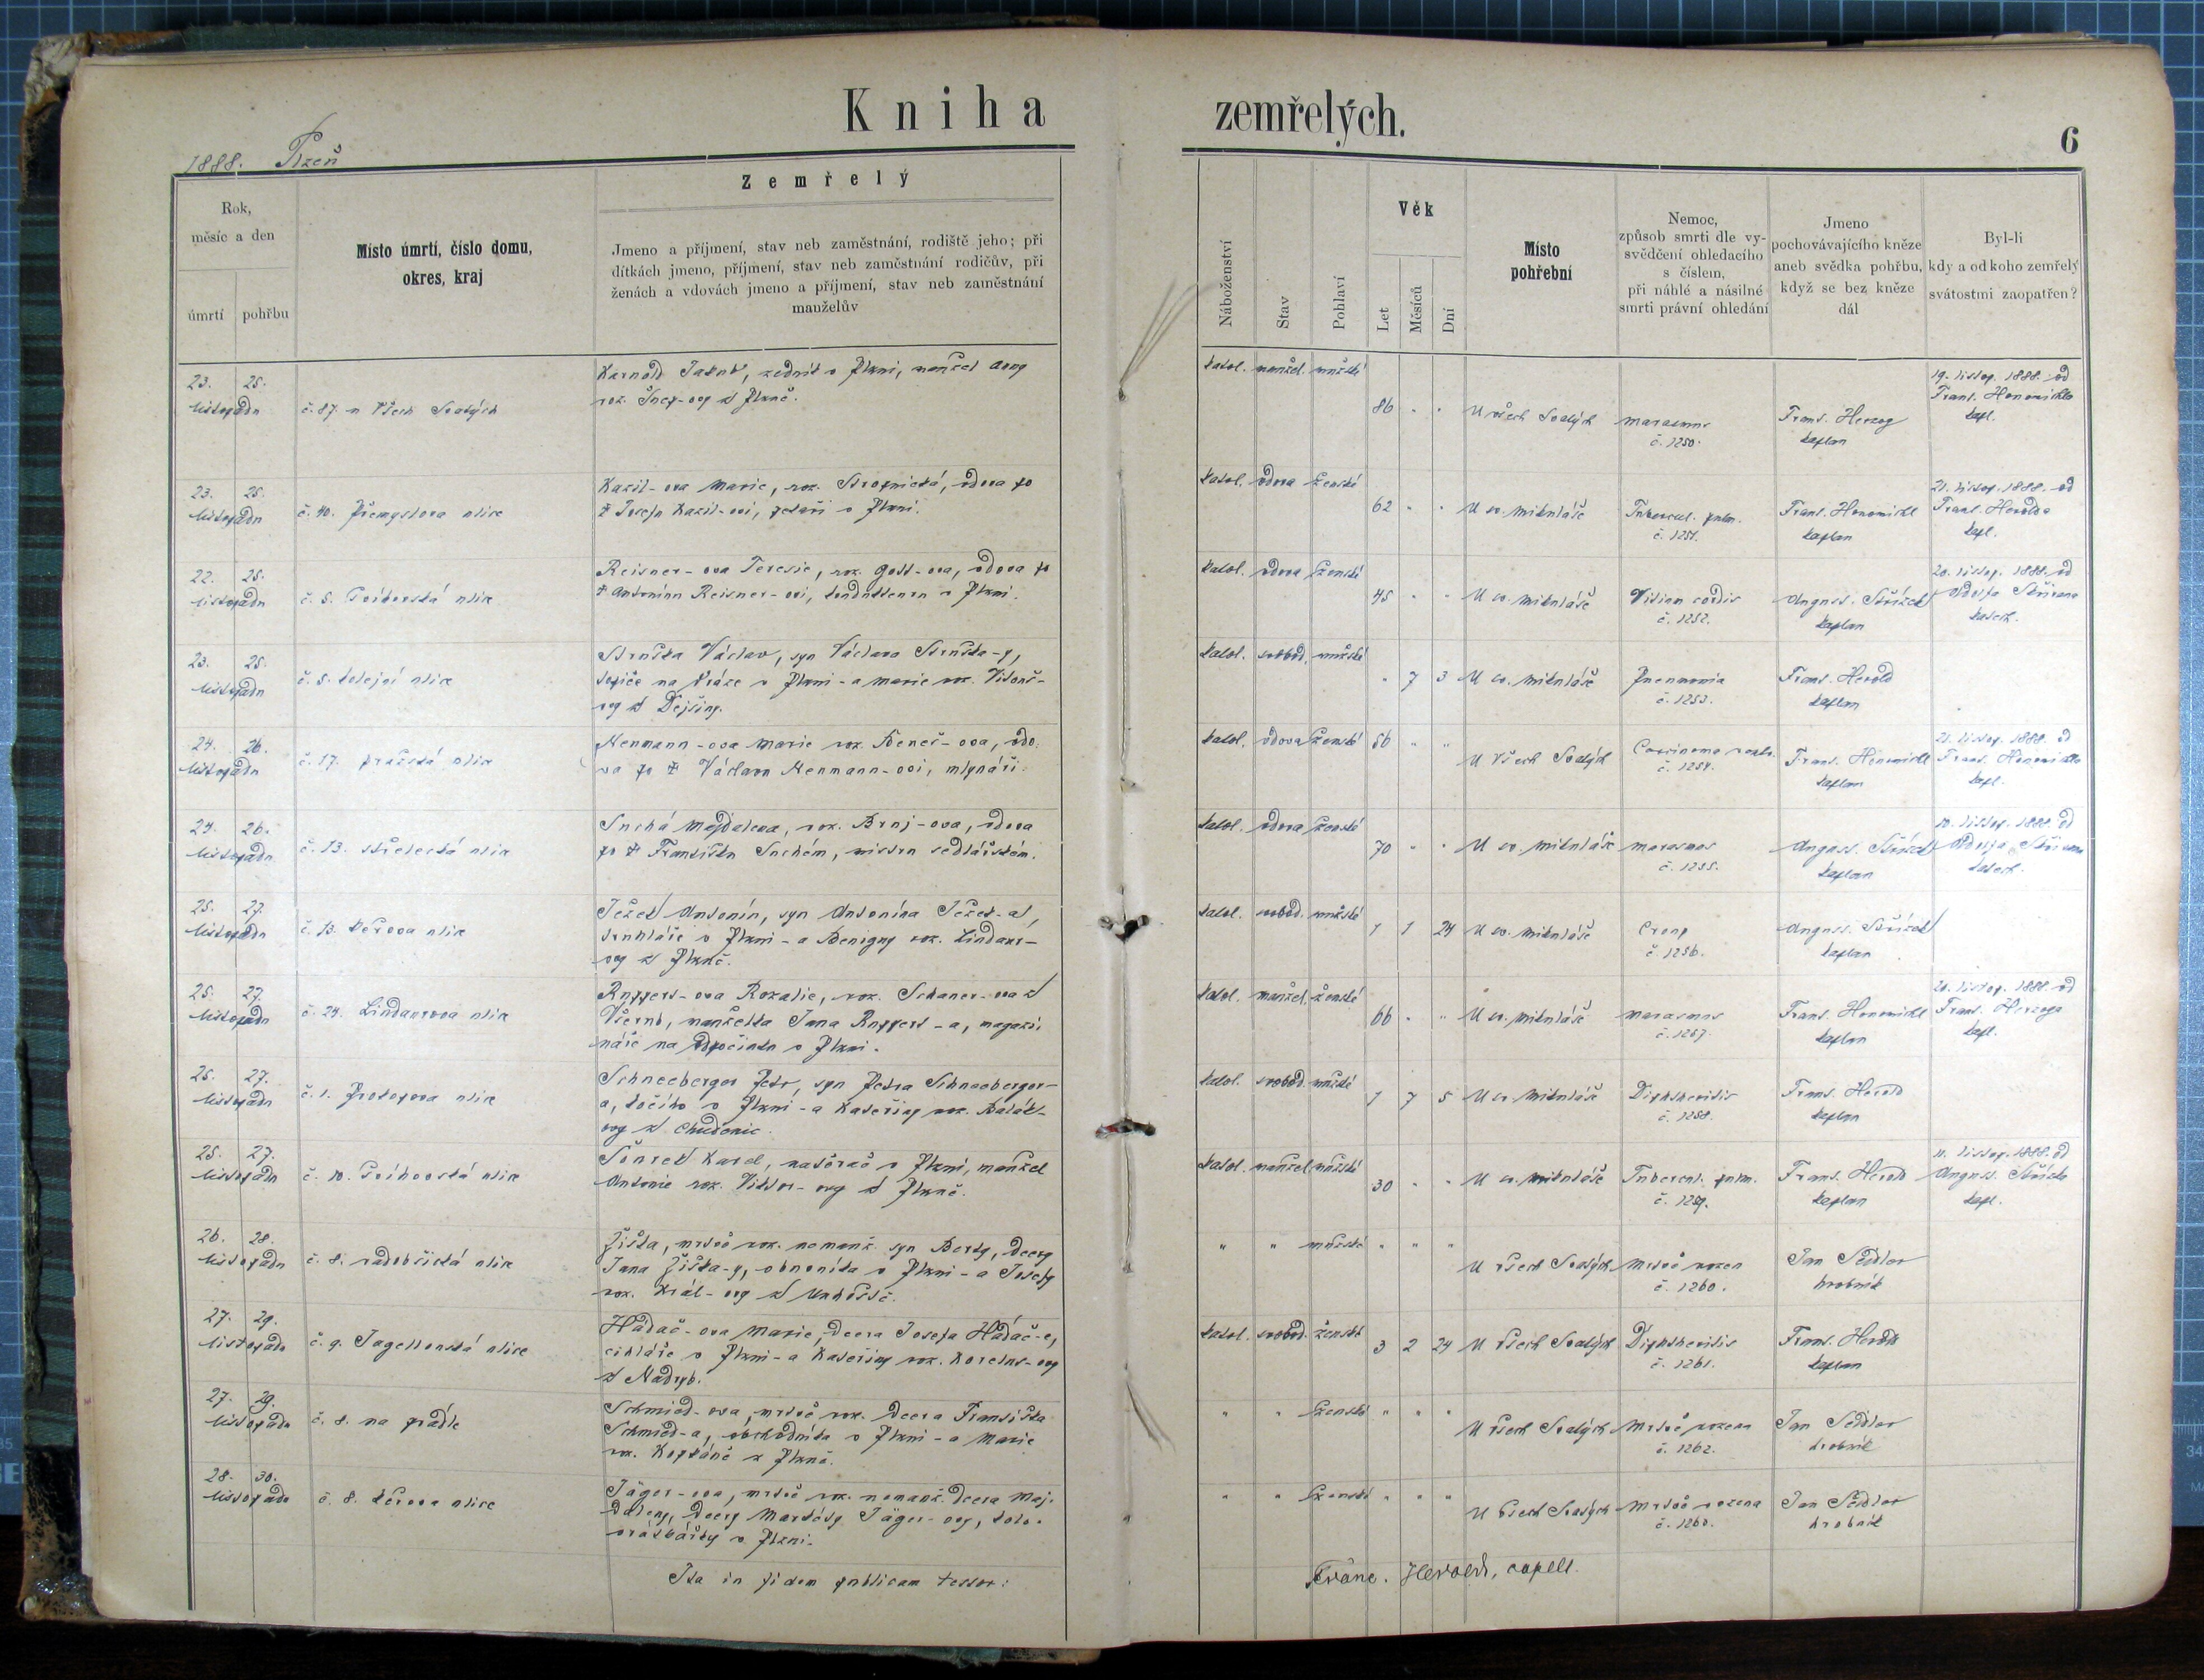 Kniha zemřelých.
6
1888. Plzeň
Rok, měsíc a den
úmrtí
pohřbu
Místo úmrtí, číslo domu, okres, kraj
Zemřelý
Jmeno a příjmení, stav neb zaměstnání, rodiště jeho; při
dítkách jmeno, příjmení, stav neb zaměstnání rodičův, při
ženách a vdovách jmeno a příjmení, stav neb zaměstnání
manželův
Náboženství
Stav
Pohlaví
Věk
Let
Měsíců
Dní
Místo pohřební
Nemoc,
způsob smrti dle vy-
svědčení ohledacího
s číslem,
při náhlé a násilné
smrti právní ohledání
Jmeno
pochovávajícího kněze
aneb svědka pohřbu,
když se bez kněze
dál
Byl-li
kdy a od koho zemřelý
svátostmi zaopatřen?
23. 25.
listopadu
č. 87. u Všech Svatých
Karnold Jakub, zedník v Plzni, manžel Anny
z Plzně.
katol. manžel. mužské
86 " "
U všech Svatých
marasmus
č. 1250.
Frant. Herzog
kaplan
19. listop. 1888. od
Frant. Honomichla
kapl.
23. 25.
listopadu
č. 40. Přemyslova ulice
Marie, roz. Stropnická, vdova po
† Josefu v Plzni.
katol. vdova ženské
62 " "
U sv. Mikuláše
Tubercul. pulm.
č. 1251.
Frant. Honomichl
kaplan
21. listop. 1888. od
Frant. Herolda
kapl.
22. 25.
listopadu
č. 5. ulice
Reisner-ova Teresie, roz. Gott-ova, vdova po
† Antonínu Reisner-ovi, konduktenru v Plzni.
katol. vdova ženské
45 " "
U sv. Mikuláše
Vitium cordis
č. 1252.
August. Střízek
kaplan
20. listop. 1888. od
Adolfa
katech.
23. 25.
listopadu
č. 5. kolejní ulice
Strnška Václav, syn Václava Strnška-y,
topiče na dráze v Plzni - a Marie roz.
z Dejšiny.
katol. svobod. mužské
" 7 3
U sv. Mikuláše
Pneumonia
č. 1253.
Frant. Herold
kaplan
24. 26.
listopadu
č. 17. pražská ulice
Neumann-ova Marie roz. Beneš-ova, vdo-
va po † Václavu Neumann-ovi, mlynáři.
katol. vdova ženské
86 " "
U Všech Svatých
č. 1254.
Frant. Honomichl
kaplan
21. listop. 1888. od
Frant. Honomichla
kapl.
24. 26.
listopadu
č. 13. střelecká ulice
Suchá Majdalena, roz. vdova
po † Františku Suchém, mistru sedlářském.
katol. vdova ženské
70 " "
U sv. Mikuláše
marasmus
č. 1255.
August. Střízek
kaplan
listop. 1888. od
Adolfa
katech.
25. 27.
listopadu
č. 13. Kérova ulice
Ježek Antonín, syn Antonína Ježek-a,
truhláře v Plzni - a Benigny roz. Lindaur-
ovy z Plzně.
katol. svobod. mužské
1 1 24
U sv. Mikuláše
Croup
č. 1256.
August. Střízek
kaplan
25. 27.
listopadu
č. 24. Lindaurova ulice
Ruppert-ova Rozalie, roz. Schaner-ova z
Všerub, manželka Jana Ruppert-a, magazi-
náře na odpočinku v Plzni.
katol. manžel. ženské
66 " "
U sv. Mikuláše
marasmus
č. 1257.
Frant. Honomichl
kaplan
listop. 1888. od
Frant. Herzoga
kapl.
25. 27.
listopadu
č. 1. Prokopova ulice
Schneeberger Petr, syn Petra Schneeberger-
a, kočího v Plzni - a Kateřiny roz.
ovy z Chudenic.
katol. svobod. mužské
1 7 5
U sv. Mikuláše
Diphtheritis
č. 1258.
Frant. Herold
kaplan
25. 27.
listopadu
č. 10. ulice
Karel, v Plzni, manžel
Antonie roz. Viktor-ovy z Plzně.
katol. manžel. mužské
30 " "
U sv. Mikuláše
Tubercul. pulm.
č. 1259.
Frant. Herold
kaplan
11. listop. 1888. od
August. Střízka
kapl.
26. 28.
listopadu
č. 8. radobčická ulice
Žiška, mrtvě roz. nemanž. syn Berty, dcery
Jana Žiška-y, obuvníka v Plzni - a Josefy
roz. Král-ovy z
" " mužské " " "
U všech Svatých
Mrtvě rozen
č. 1260.
Jan Sedlor
hrobník
27. 29.
listopadu
č. 9. Jagellonská ulice
Hadač-ova Marie, dcera Josefa Hadač-e,
cihláře v Plzni - a Kateřiny roz.
z Nadryb.
katol. svobod. ženské
3 2 24
U všech Svatých
Diphtheritis
č. 1261.
Frant. Herold
kaplan
27. 29.
listopadu
č. 8. na prádle
Schmied-ova, mrtvě roz. dcera Františka
Schmied-a, obchodníka v Plzni - a Marie
roz. z Plzně.
" " ženské " " "
U všech Svatých
Mrtvě rozena
č. 1262.
Jan Sedlor
hrobník
28. 30.
listopadu
č. 8. Kérova ulice
Jäger-ova, mrtvě roz. nemanž. dcera Maj-
daleny, dcery Jäger-ovy,
v Plzni.
" " ženské " " "
U všech Svatých
Mrtvě rozena
č. 1263.
Jan Sedlor
hrobník
Ita in fidem publicam testor:
Franc. Herold, capell.